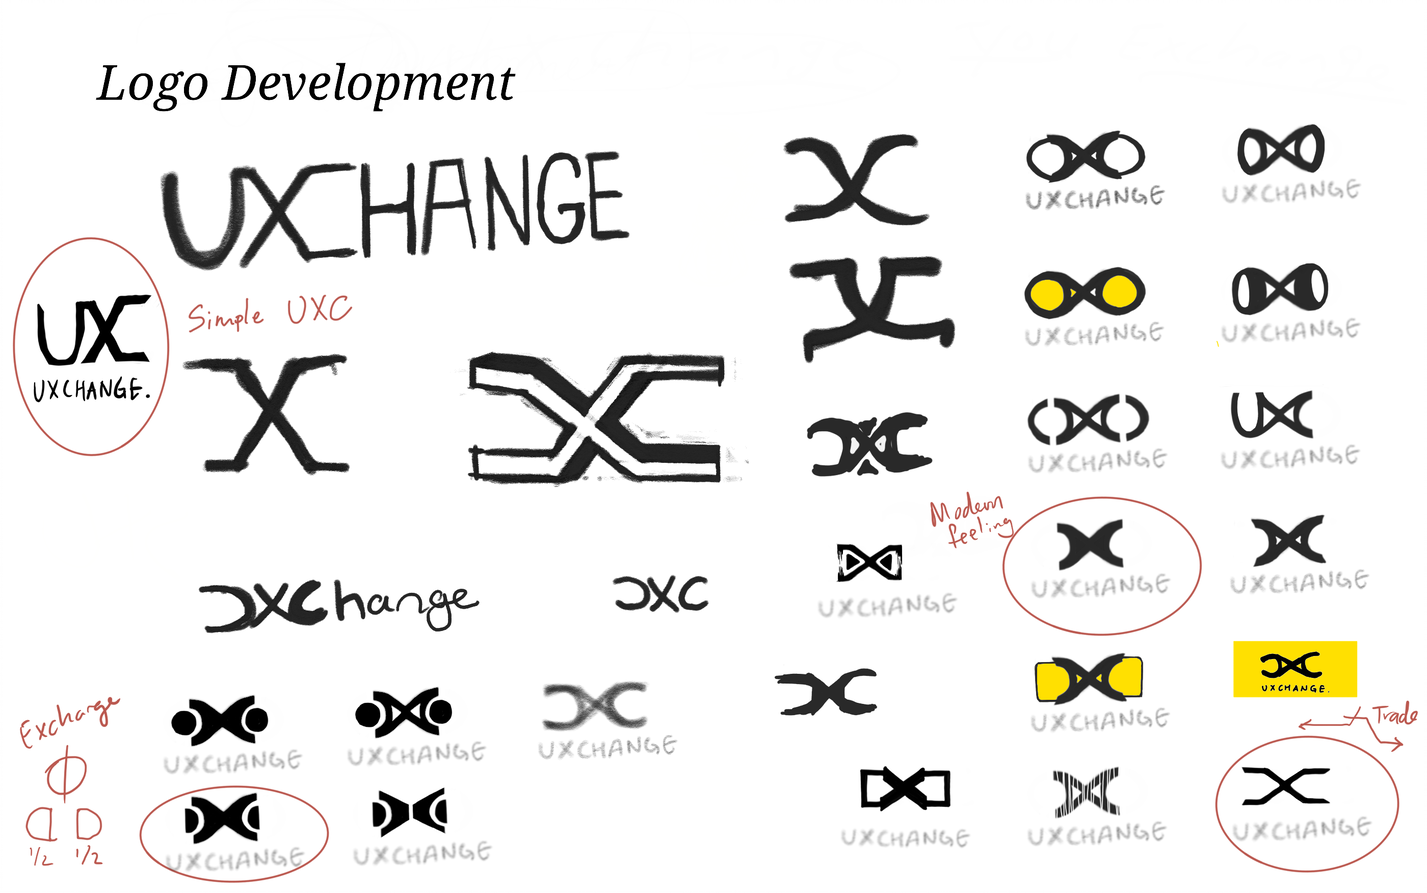 Logo Development
UXCHANGE
UXC
UXCHANGE.
Simple UXC
UXChange
UXC
Exchange
1/2 1/2
UXCHANGE
UXCHANGE
UXCHANGE
UXCHANGE
UXCHANGE
UXCHANGE
UXCHANGE
UXCHANGE
UXCHANGE
UXCHANGE
UXC
UXCHANGE
Modern
feeling
UXCHANGE
UXCHANGE
UXCHANGE
UXCHANGE
UXCHANGE
UXCHANGE.
Trade
UXCHANGE
UXCHANGE
UXCHANGE